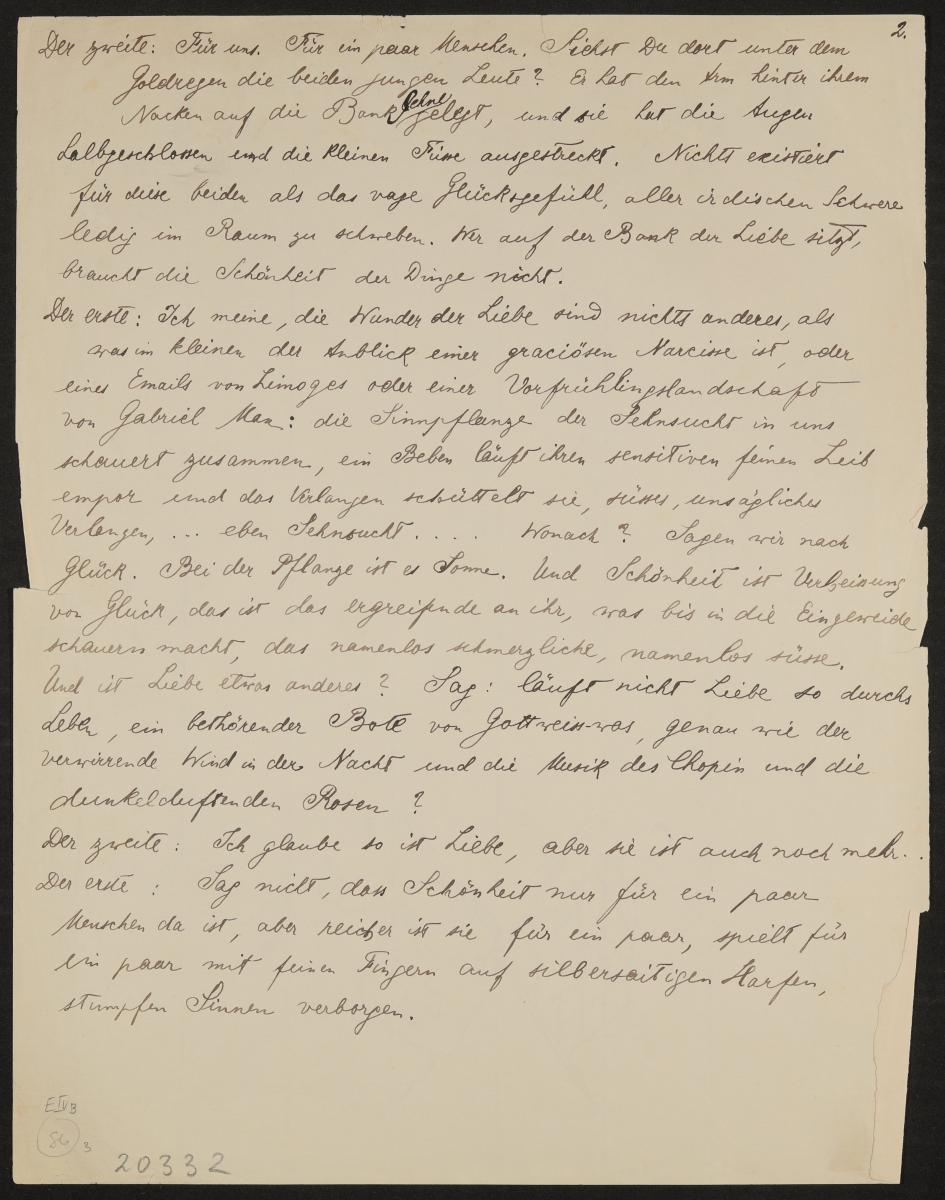 2.
Der zweite: Für uns. Für ein paar Menschen. Siehst Du dort unter dem
Goldregen die beiden jungen Leute? Er hat den Arm hinter ihrem
Nacken auf die Banklehne gelegt, und sie hat die Augen
halbgeschlossen und die kleinen Füsse ausgestreckt. Nichts existiert
für diese beiden als das vage Glücksgefühl, aller irdischen Schwere
ledig im Raum zu schweben. Wer auf der Bank der Liebe sitzt,
braucht die Schönheit der Dinge nicht.
Der erste: Ich meine, die Wunder der Liebe sind nichts anderes, als
was im kleinen der Anblick einer graciösen Narcisse ist, oder
eines Emails von Limoges oder einer Vorfrühlingslandschaft
von Gabriel Max: die Sinnpflanze der Sehnsucht in uns
schauert zusammen, ein Beben läuft ihren sensitiven feinen Leib
empor und das Verlangen schüttelt sie, süsses, unsägliches
Verlangen, ... eben Sehnsucht.... Wonach? Sagen wir nach
Glück. Bei der Pflanze ist es Sonne. Und Schönheit ist Verheissung
von Glück, das ist das ergreifende an ihr, was bis in die Eingeweide
schauern macht, das namenlos schmerzliche, namenlos süsse.
Und ist Liebe etwas anderes? Sag: läuft nicht Liebe so durchs
Leben, ein bethörender Bote von Gottweiss-was, genau wie der
verwirrende Wind in der Nacht und die Musik des Chopin und die
dunkelduftenden Rosen?
Der zweite: Ich glaube so ist Liebe, aber sie ist auch noch mehr..
Der erste: Sag nicht, dass Schönheit nur für ein paar
Menschen da ist, aber reicher ist sie für ein paar, spielt für
ein paar mit feinen Fingern auf silbersaitigen Harfen,
stumpfen Sinnen verborgen.
E IV B
86 3
20332